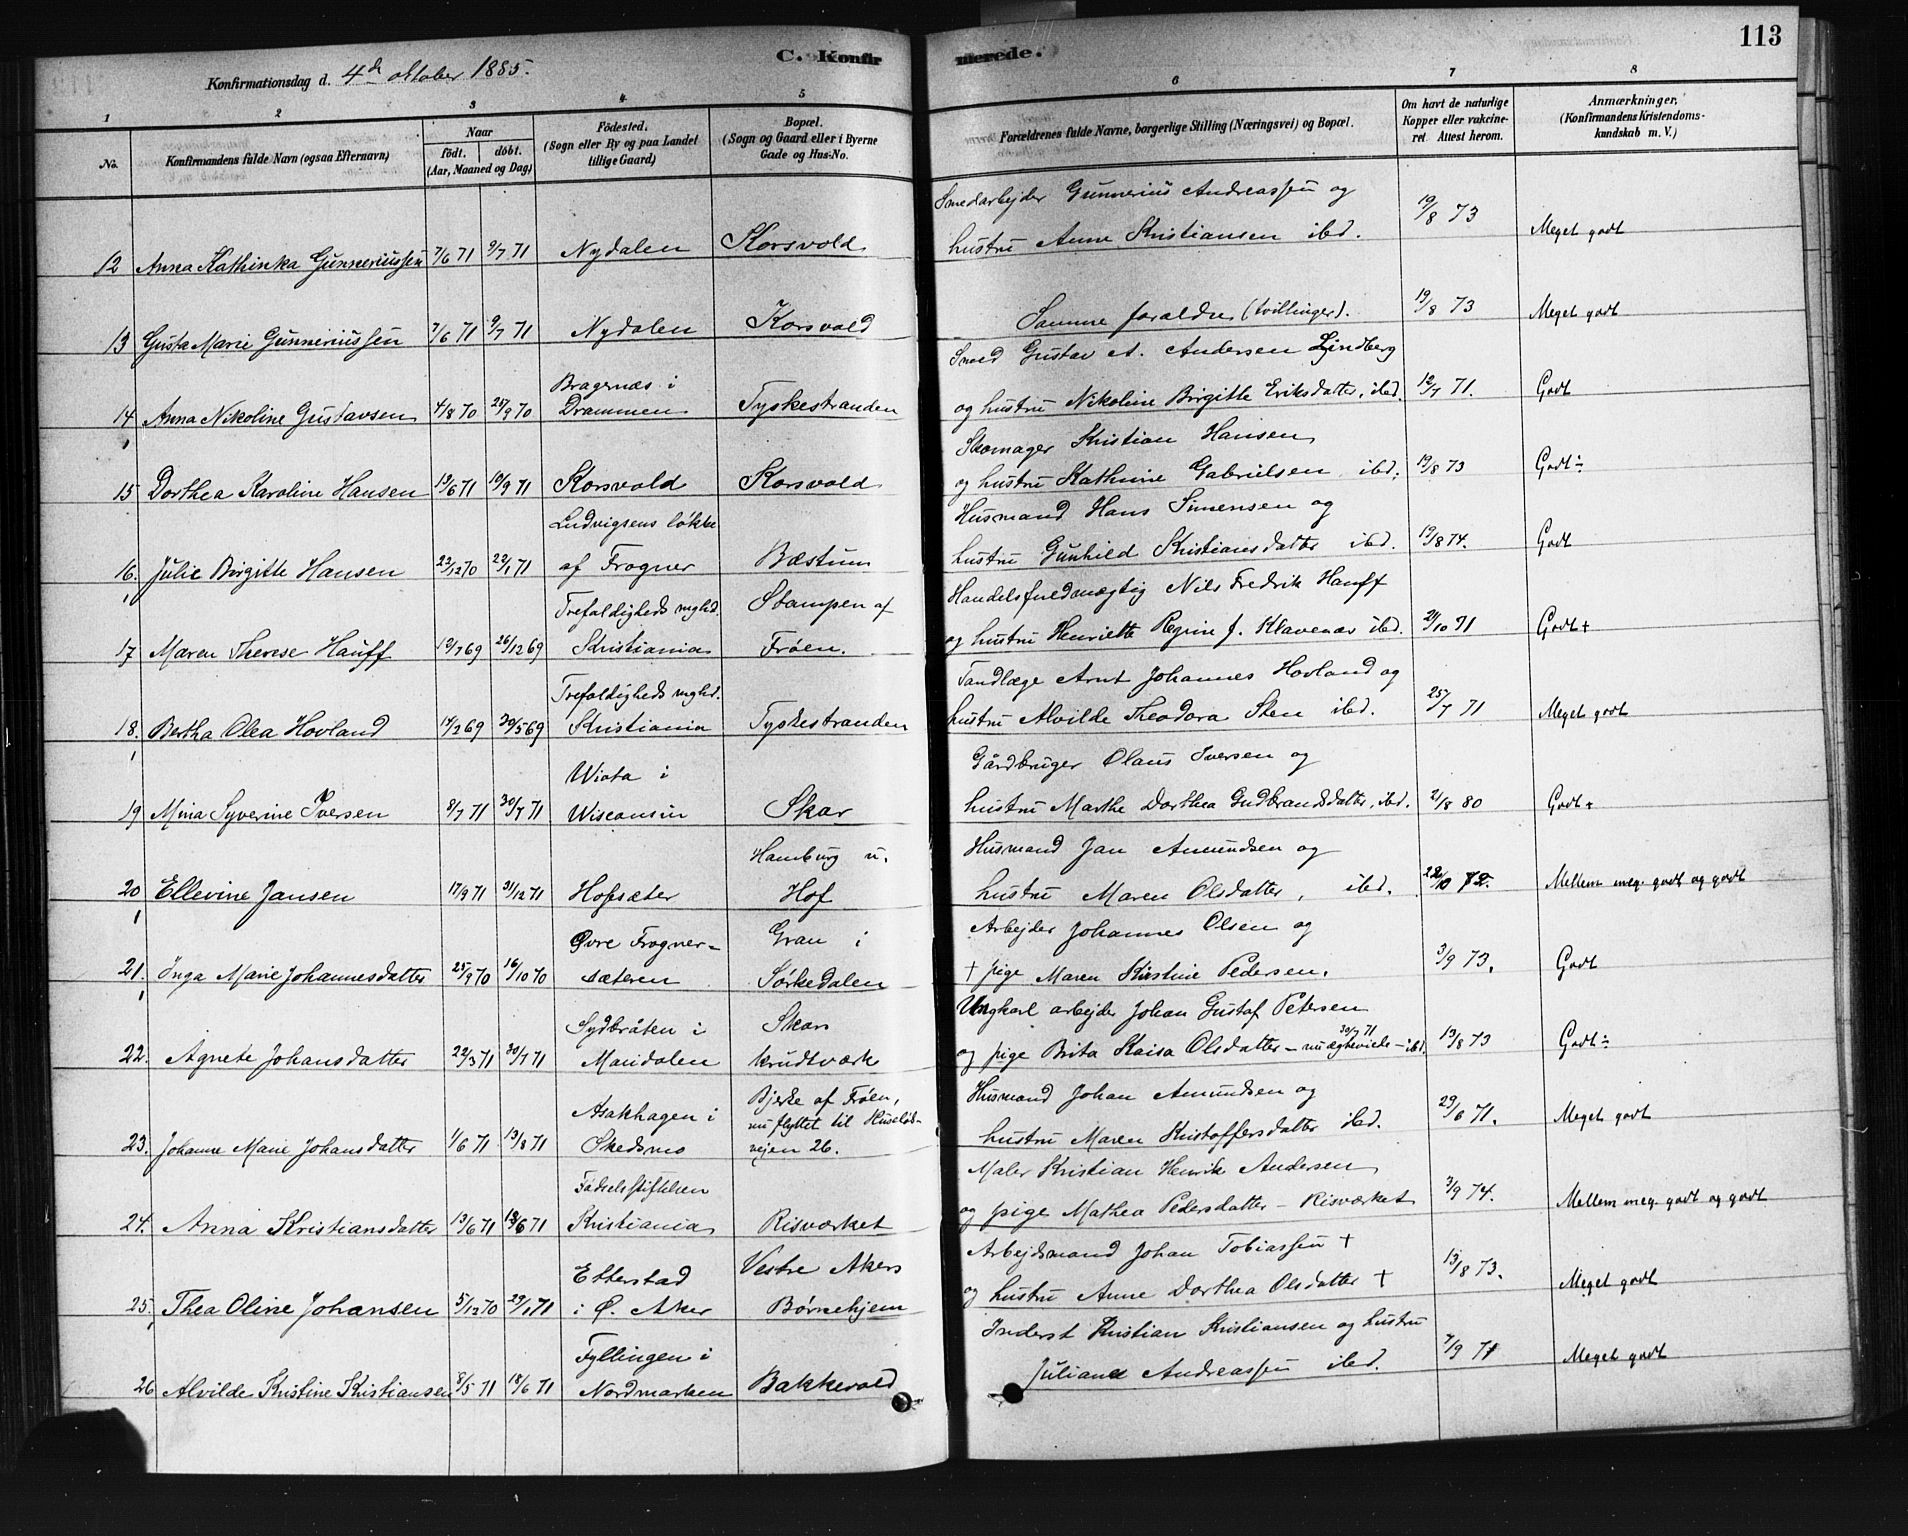 113
C. Konfirmerede.
Konfirmationsdag d. 4de oktober 1885.
1 2 3 4 5 6 7 8
No.
Konfirmandens fulde Navn (ogsaa Efternavn)
Naar
födt. döbt.
(Aar, Maaned og Dag)
Födested.
(Sogn eller By og paa Landet
tillige Gaard)
Bopæl.
(Sogn og Gaard eller i Byerne
Gade og Hus-No.
Forældrenes fulde Navne, borgerlige Stilling (Næringsvei) og Bopæl.
Om havt de naturlige
Kopper eller vakcine-
ret Attest herom.
Anmærkninger,
(Konfirmandens Kristendoms-
kundskab m. V.)
Smedarbejder Gunnerius Andreassen og
12 Anna Kathinka Gunneriussen 7/6 71 9/7 71 Nydalen Korsvold hustru Anne Kristiansen ibd. 19/8 73 Meget godt
13 Gusta Marie Gunneriussen 7/6 71 9/7 71 Nydalen Korsvold Samme foraldre (tvillinger). 19/8 73 Meget godt
Bragernæs i Smed Gustav A. Andersen Lindberg
14 Anna Nikoline Gustavsen 4/8 70 25/9 70 Drammen Tyskestranden og hustru Nikoline Birgitte Eriksdatter, ibd. 12/7 71. Godt
Skomager Kristian Hansen
15 Dorthea Karoline Hansen 13/6 71 10/9 71 Korsvold Korsvold og hustru Kathrine Gabrielsen ibd. 19/8 73 Godt÷
Ludvigsens løkke Husmand Hans Simensen og
16. Julie Birgitte Hansen 23/12 70 29/1 71 af Frogner Bæstum hustru Gunhild Kristiansdatter ibd. 19/8 74. Godt
Trefoldigheds mghd. Stampen af Handelsfuldmægtig Nils Fredrik Hauff
17 Maren Therese Hauff 19/7 69 26/12 69 Kristiania Frøen. og hustru Henriette Regine J. Klavenæs ibd. 2/10 71 Godt+
Trefoldigheds mghd. Tandlæge Arnt Johannes Hovland og
18. Bertha Olea Hovland 14/2 69 30/5 69 Kristiania Tyskestranden hustru Alvilde Theodora Sten ibd. 25/7 71 Meget godt
Wiota i Gårdbruger Olaus Iversen og
19 Mina Syverine Iversen 8/7 71 30/7 71 Wisconsin Skar hustru Marthe Dorthea Gudbrandsdatter, ibd. 2/8 80 Godt+
Hamburg u. Husmand Jan Amundsen og
20 Ellevine Jansen 17/9 71 31/12 71 Hofsæter Hof hustru Maren Olsdatter, ibd. 22/10 72. Mellem meg. godt og godt
Øvre Frogner- Gran i Arbejder Johannes Olsen og
21. Inga Marie Johannesdatter 25/9 70 16/10 70 sæteren Sørkedalen + pige Maren Kirstine Pedersen. 3/9 73. Godt
Sydbråten i Skars Ungkarl arbejder Johan Gustaf Petersen
22. Agnete Johansdatter 22/3 71 30/7 71 Maridalen krudtværk og pige Brita Kaisa Olsdatter – nu ægteviede 30/7 71 – ibd. 13/8 73 Godt÷
Asakhagen i Bjerke af Frøen, Husmand Johan Amundsen og
nu flyttet til Huseløk-
23. Johanne Marie Johansdatter 1/6 71 13/8 71 Skedsmo vejen 26. hustru Maren Kristoffersdatter ibd. 29/6 71. Meget godt
Fødselsstiftelsen Maler Kristian Henrik Andersen
24. Anna Kristiansdatter 13/6 71 18/6 71 Kristiania Risværket og pige Mathea Pedersdatter – Risværket 3/9 74. Mellem meg. godt og godt
Etterstad Vestre Akers Arbejdsmand Johan Tobiassen +
25. Thea Oline Johansen 5/12 70 29/1 71 i Ø. Aker Børnehjem og hustru Anne Dorthea Olsdatter + 13/8 73. Meget godt
Fyllingen i Inderst Kristian Kristiansen og hustru
26 Alvilde Kristine Kristiansen 8/5 71 18/6 71 Nordmarken Bakkevold Juliane Andreassen ibd. 7/9 71 Meget godt